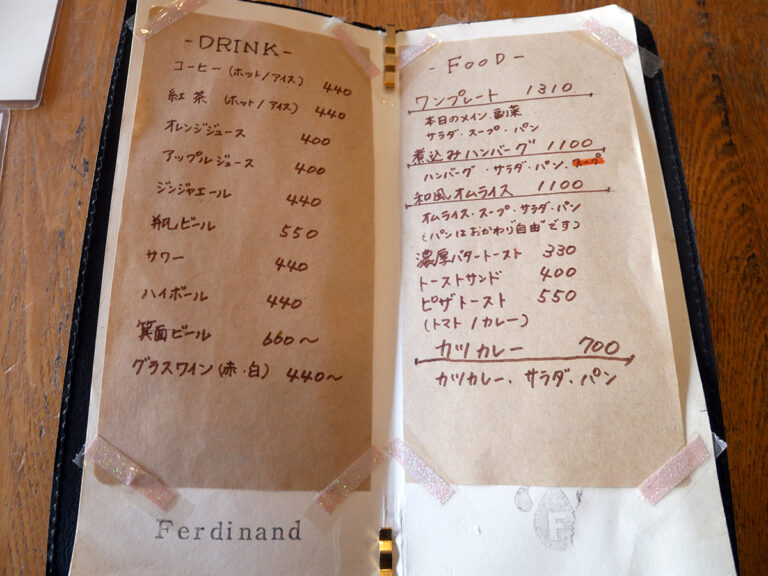 -DRINK-
コーヒー (ホット/アイス) 440
紅茶 (ホット/アイス) 440
オレンジジュース 400
アップルジュース 400
ジンジャエール 440
瓶ビール 550
サワー 440
ハイボール 440
箕面ビール 660〜
グラスワイン (赤・白) 440〜
Ferdinand
-FOOD-
ワンプレート 1310
本日のメイン、副菜
サラダ・スープ・パン
煮込みハンバーグ 1100
ハンバーグ・サラダ・パン・スープ
和風オムライス 1100
オムライス・スープ・サラダ・パン
(パンはおかわり自由です)
濃厚バタートースト 330
トーストサンド 400
ピザトースト 550
(トマト/カレー)
カツカレー 700
カツカレー・サラダ・パン
F